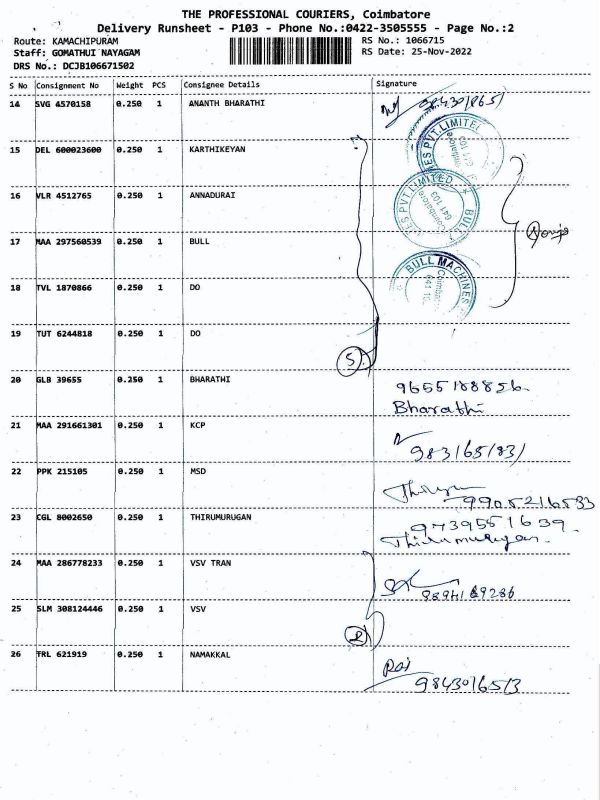 THE PROFESSIONAL COURIERS, Coimbatore
Delivery Runsheet - P103 - Phone No.:0422-3505555 - Page No.:2
Route: KAMACHIPURAM
RS No.: 1066715
Staff: GOMATHUI NAYAGAM
RS Date: 25-Nov-2022
DRS No.: DCJB106671502
S No Consignment No Weight PCS Consignee Details Signature
14 SVG 4570158 0.250 1 ANANTH BHARATHI
15 DEL 600023600 0.250 1 KARTHIKEYAN
16 VLR 4512765 0.250 1 ANNADURAI
17 MAA 297560539 0.250 1 BULL
BULL MACHINES
18 TVL 1870866 0.250 1 DO
19 TUT 6244818 0.250 1 DO
5
20 GLB 39655 0.250 1 BHARATHI
9655188856.
Bharathi
21 MAA 291661301 0.250 1 KCP
22 PPK 215105 0.250 1 MSD
9905216533
23 CGL 8002650 0.250 1 THIRUMURUGAN
9739551639.
Thirumurugan.
24 MAA 286778233 0.250 1 VSV TRAN
25 SLM 308124446 0.250 1 VSV
2
26 TRL 621919 0.250 1 NAMAKKAL
9843016513